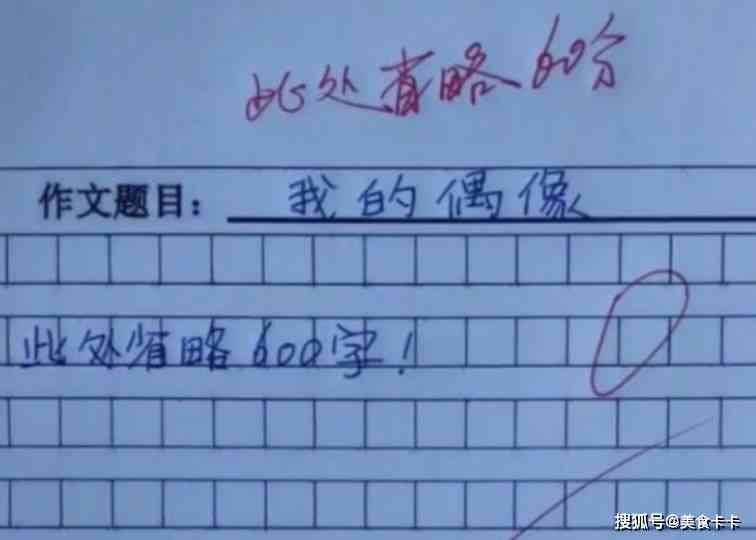 此处省略60分
作文题目：我的偶像
此处省略600字！
搜狐号@美食卡卡